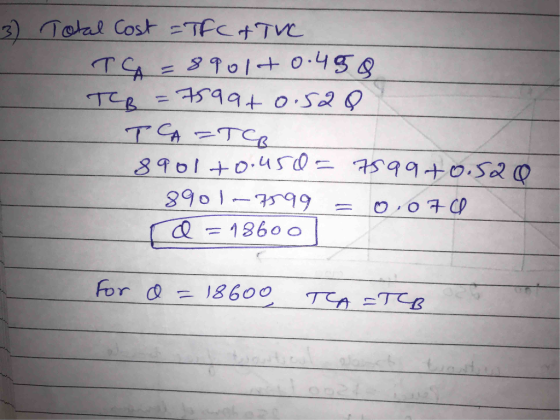 3) Total Cost = TFC + TVC
TCA = 8901 + 0.45Q
TCB = 7599 + 0.52Q
TCA = TCB
8901 + 0.45Q = 7599 + 0.52Q
8901 - 7599 = 0.07Q
Q = 18600
For Q = 18600, TCA = TCB